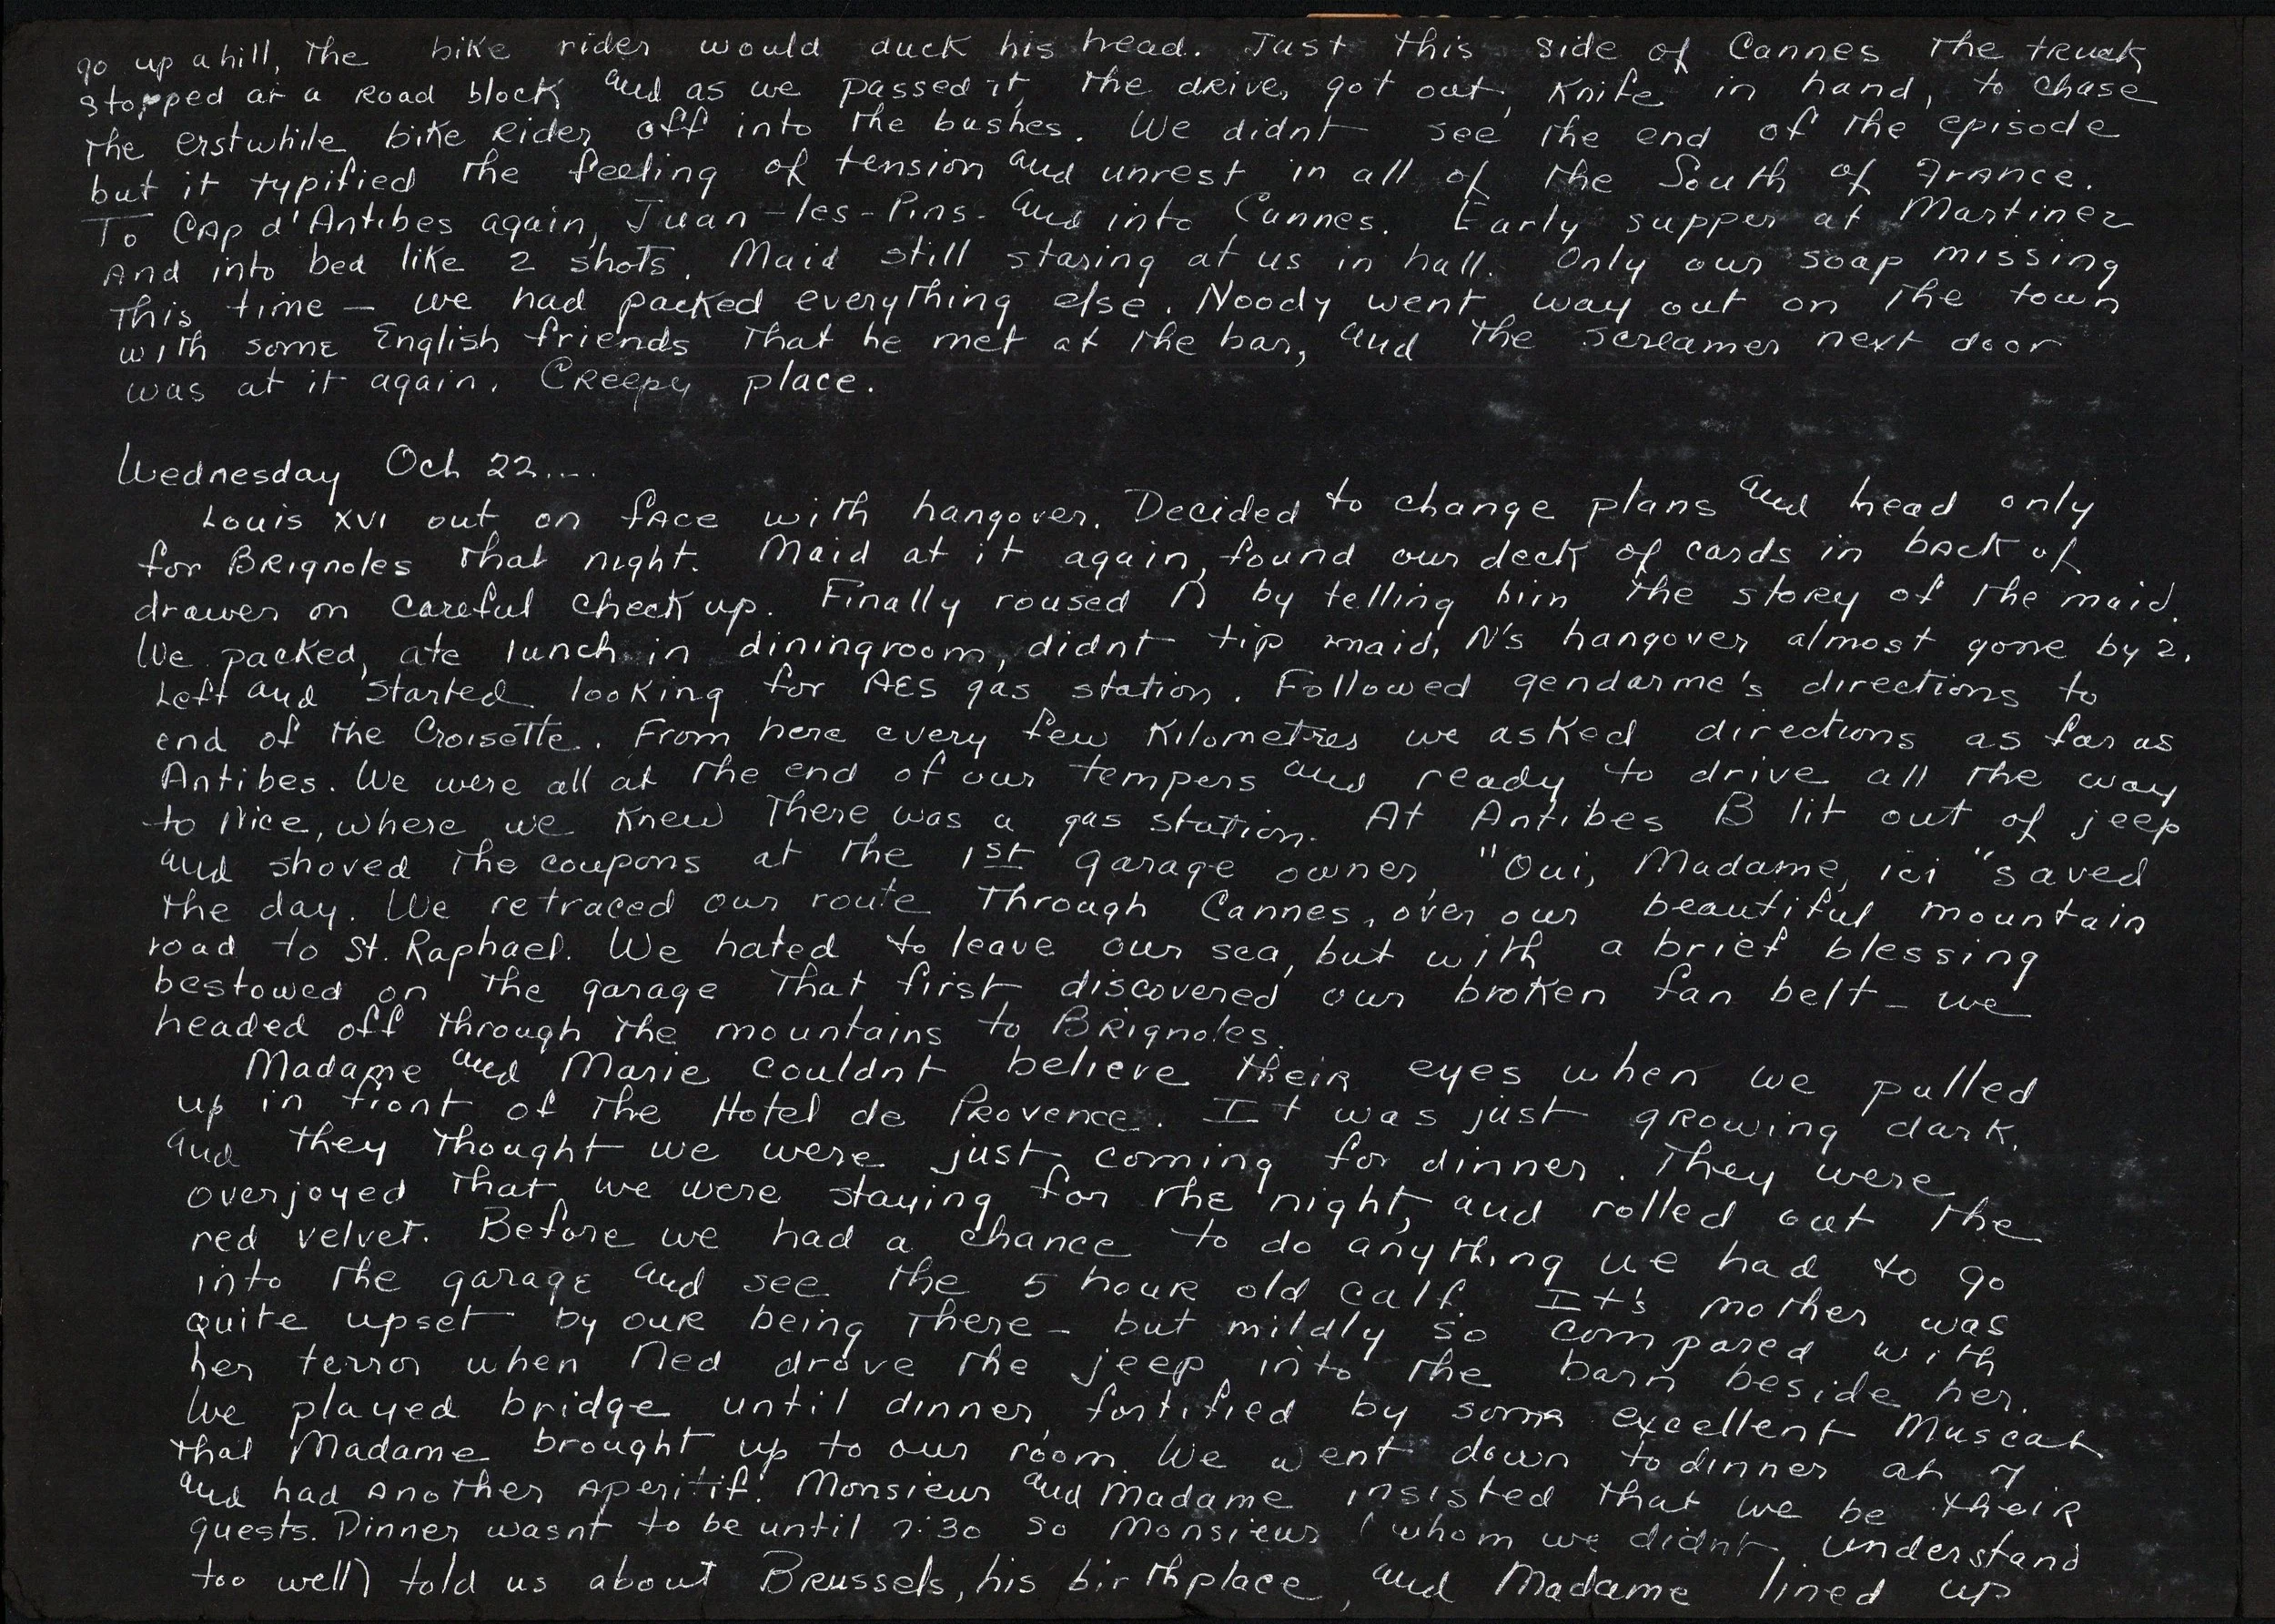 go up a hill, the bike rider would duck his head. Just this side of Cannes the truck
stopped at a Road block and as we passed it, the driver got out, knife in hand, to chase
the erstwhile bike Rider off into the bushes. We didnt see the end of the episode
but it typified the feeling of tension and unrest in all of the South of France.
To Cap d'Antibes again, Juan-les-Pins- and into Cannes. Early supper at Martinez
And into bed like 2 shots. Maid still staring at us in hall. Only our soap missing
this time — we had packed everything else. Noody went way out on the town
with some English friends that he met at the bar, and the screamer next door
was at it again. Creepy place.
Wednesday Oct 22....
Louis XVI out on face with hangover. Decided to change plans and head only
for Brignoles that night. Maid at it again, found our deck of cards in back of
drawer on careful check up. Finally roused N by telling him the story of the maid.
We packed, ate lunch in diningroom, didnt tip maid, N's hangover almost gone by 2.
Left and started looking for AES gas station. Followed gendarme's directions to
end of the Croisette. From here every few Kilometres we asked directions as far as
Antibes. We were all at the end of our tempers and ready to drive all the way
to Nice, where we knew there was a gas station. At Antibes B lit out of jeep
and shoved the coupons at the 1st garage owner, "Oui, Madame, ici" saved
the day. We retraced our route through Cannes, over our beautiful mountain
road to St. Raphael. We hated to leave our sea, but with a brief blessing
bestowed on the garage that first discovered our broken fan belt - we
headed off through the mountains to Brignoles.
Madame and Marie couldnt believe their eyes when we pulled
up in front of the Hotel de Provence. It was just growing dark,
and they thought we were just coming for dinner. They were
overjoyed that we were staying for the night, and rolled out the
red velvet. Before we had a chance to do anything we had to go
into the garage and see the 5 hour old calf. It's mother was
quite upset by our being there - but mildly so compared with
her terror when Ned drove the jeep into the barn beside her.
We played bridge until dinner, fortified by some excellent Muscat
that Madame brought up to our room. We went down to dinner at 7
and had another aperitif. Monsieur and Madame insisted that we be their
guests. Dinner wasnt to be until 7:30 so Monsieur (whom we didnt understand
too well) told us about Brussels, his birthplace, and Madame lined up